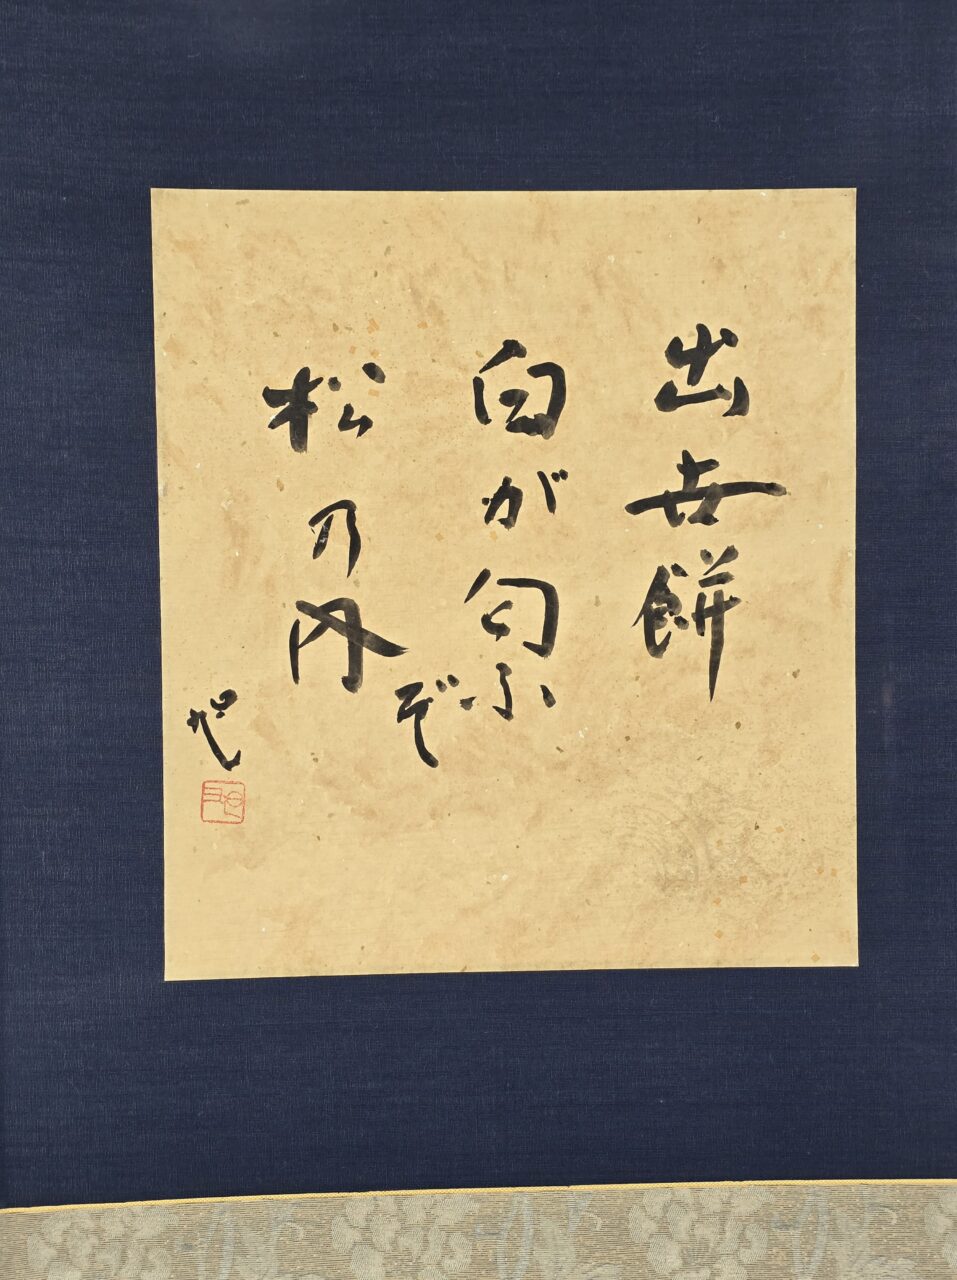 出世餅
白が匂ふぞ
松乃内